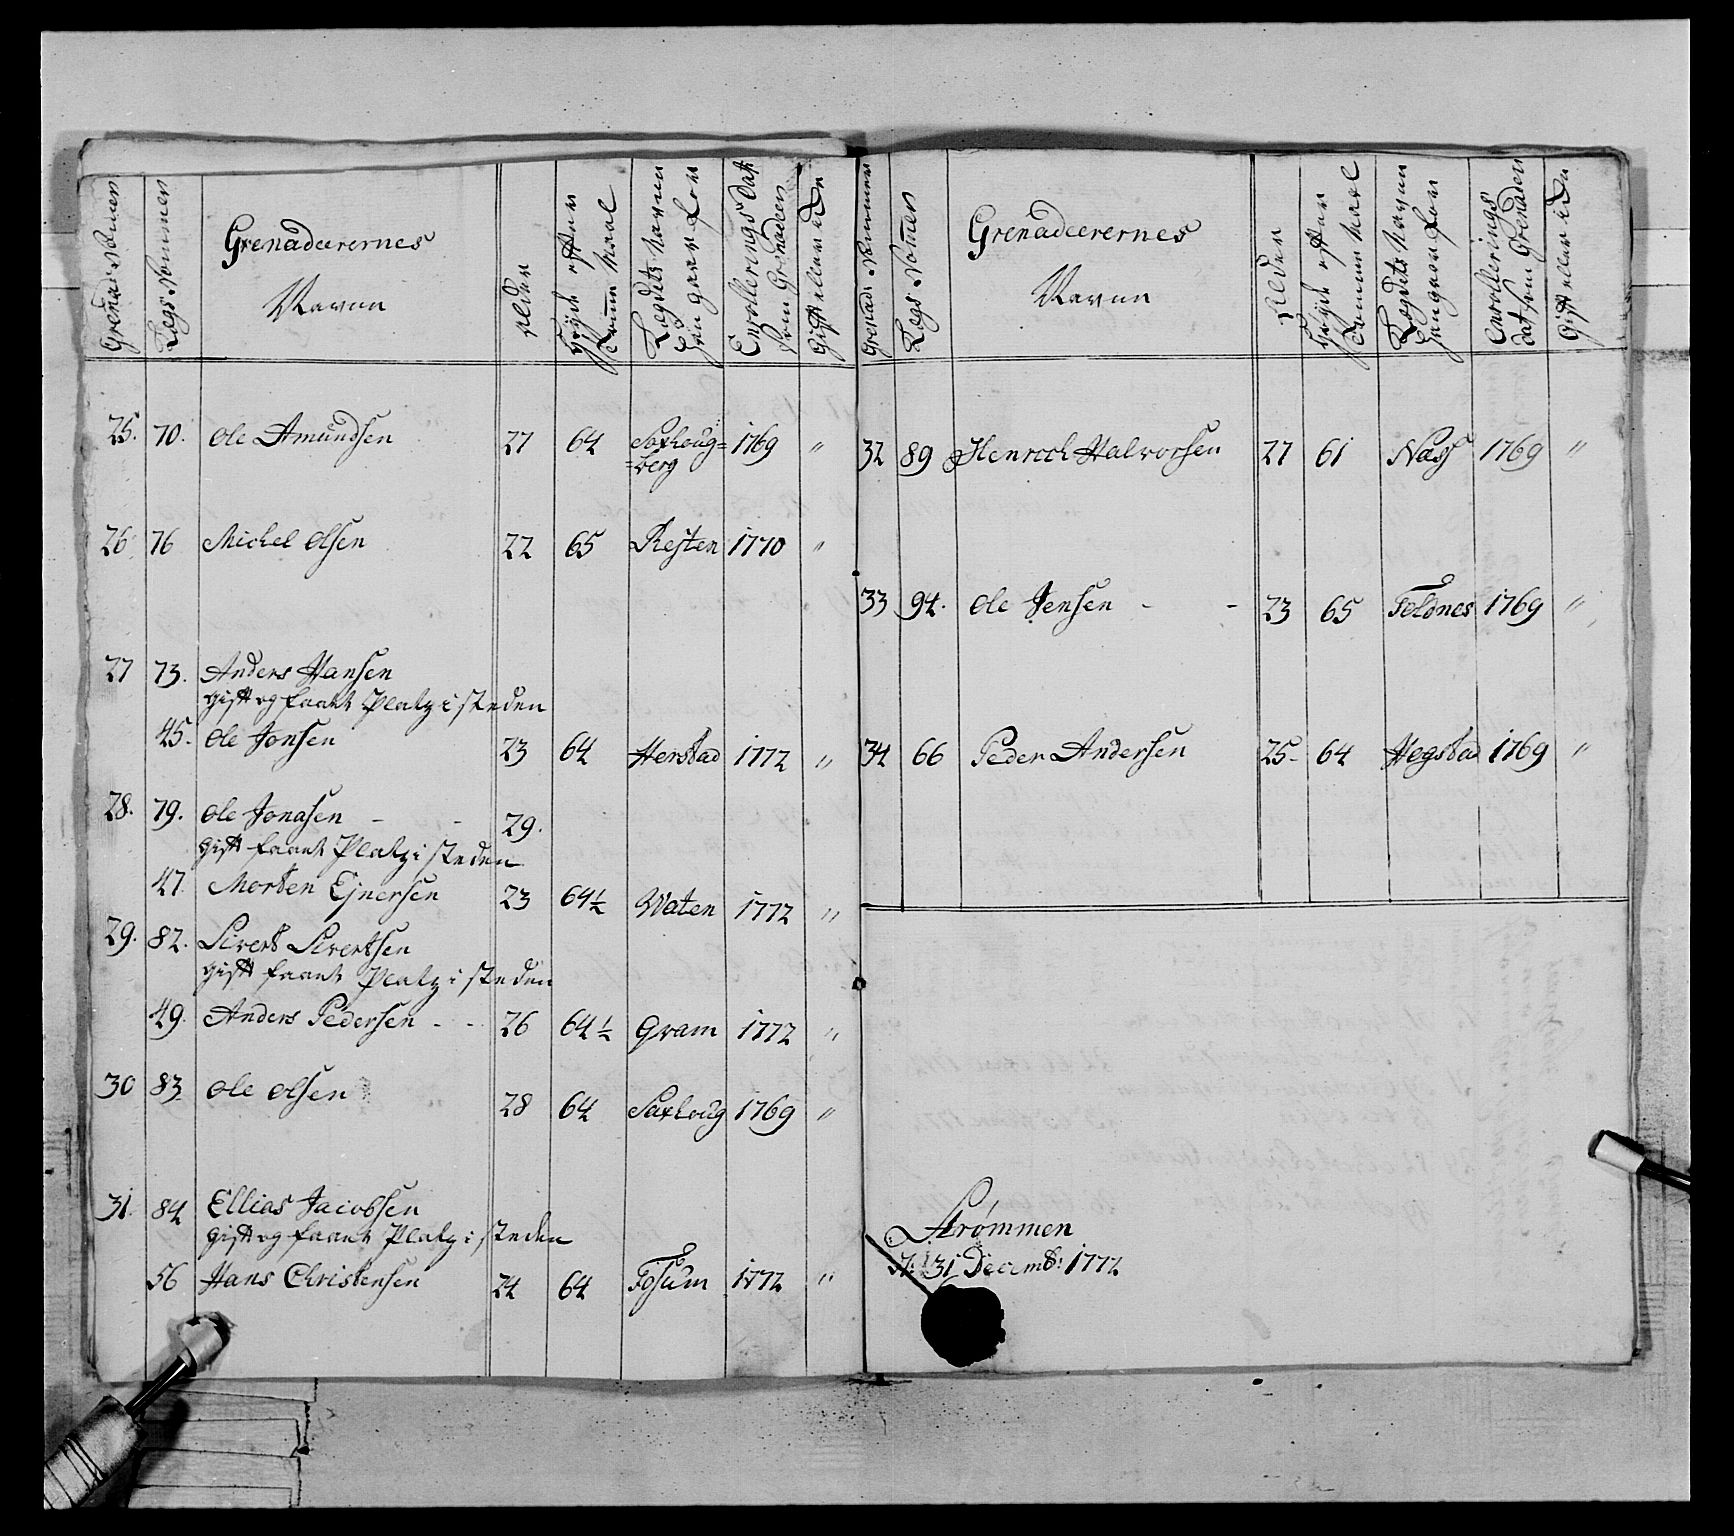 Grenad: Nommer | Lægs Nommer | Grenadeerernes Navne | Alder | Høyde efter Tomme Maal | Lægdets Navn Han gaar for | Enrollerings Dat: som Grenadeer | Gift eller ey
25. 70. Ole Amundsen 27 64 Saxhoug= 1769 "
=berg
26 76 Michel Olsen 22 65 Resten 1770 "
27 73. Anders Hansen
Gift og faaet Platz i steden
45. Ole Jonsen 23 64 Herstad 1772 "
28. 79. Ole Jonasen - - 29.
Gift faaet Platz i steden
47. Morten Ejnersen 23 64½ Waten 1772 "
29. 82. Sivert Sivertsen
Gift faaet Platz i steden
49. Anders Pedersen - - 26 64½ Gram 1772 "
30 83 Ole Olsen 28 64 Saxhoug 1769 "
31. 84 Ellias Jacobsen
Gift og faaet Platz i steden
56 Hans Christensen 24 64 Fosum 1772 "
Grenad: Nommer | Lægs Nommer | Grenadeerernes Navne | Alder | Høyde efter Tomme Maal | Lægdets Navn Han gaar for | Enrollerings Dat som Grenadeer | Gift eller ey
32 89 Henrich Halvorsen 27 61 Næss 1769 "
33 94. Ole Jensen - - 23 65 Foldnes 1769 "
34 66 Peder Andersen 25- 64 Hegstad 1769 "
Strømmen
31 Decemb: 1772